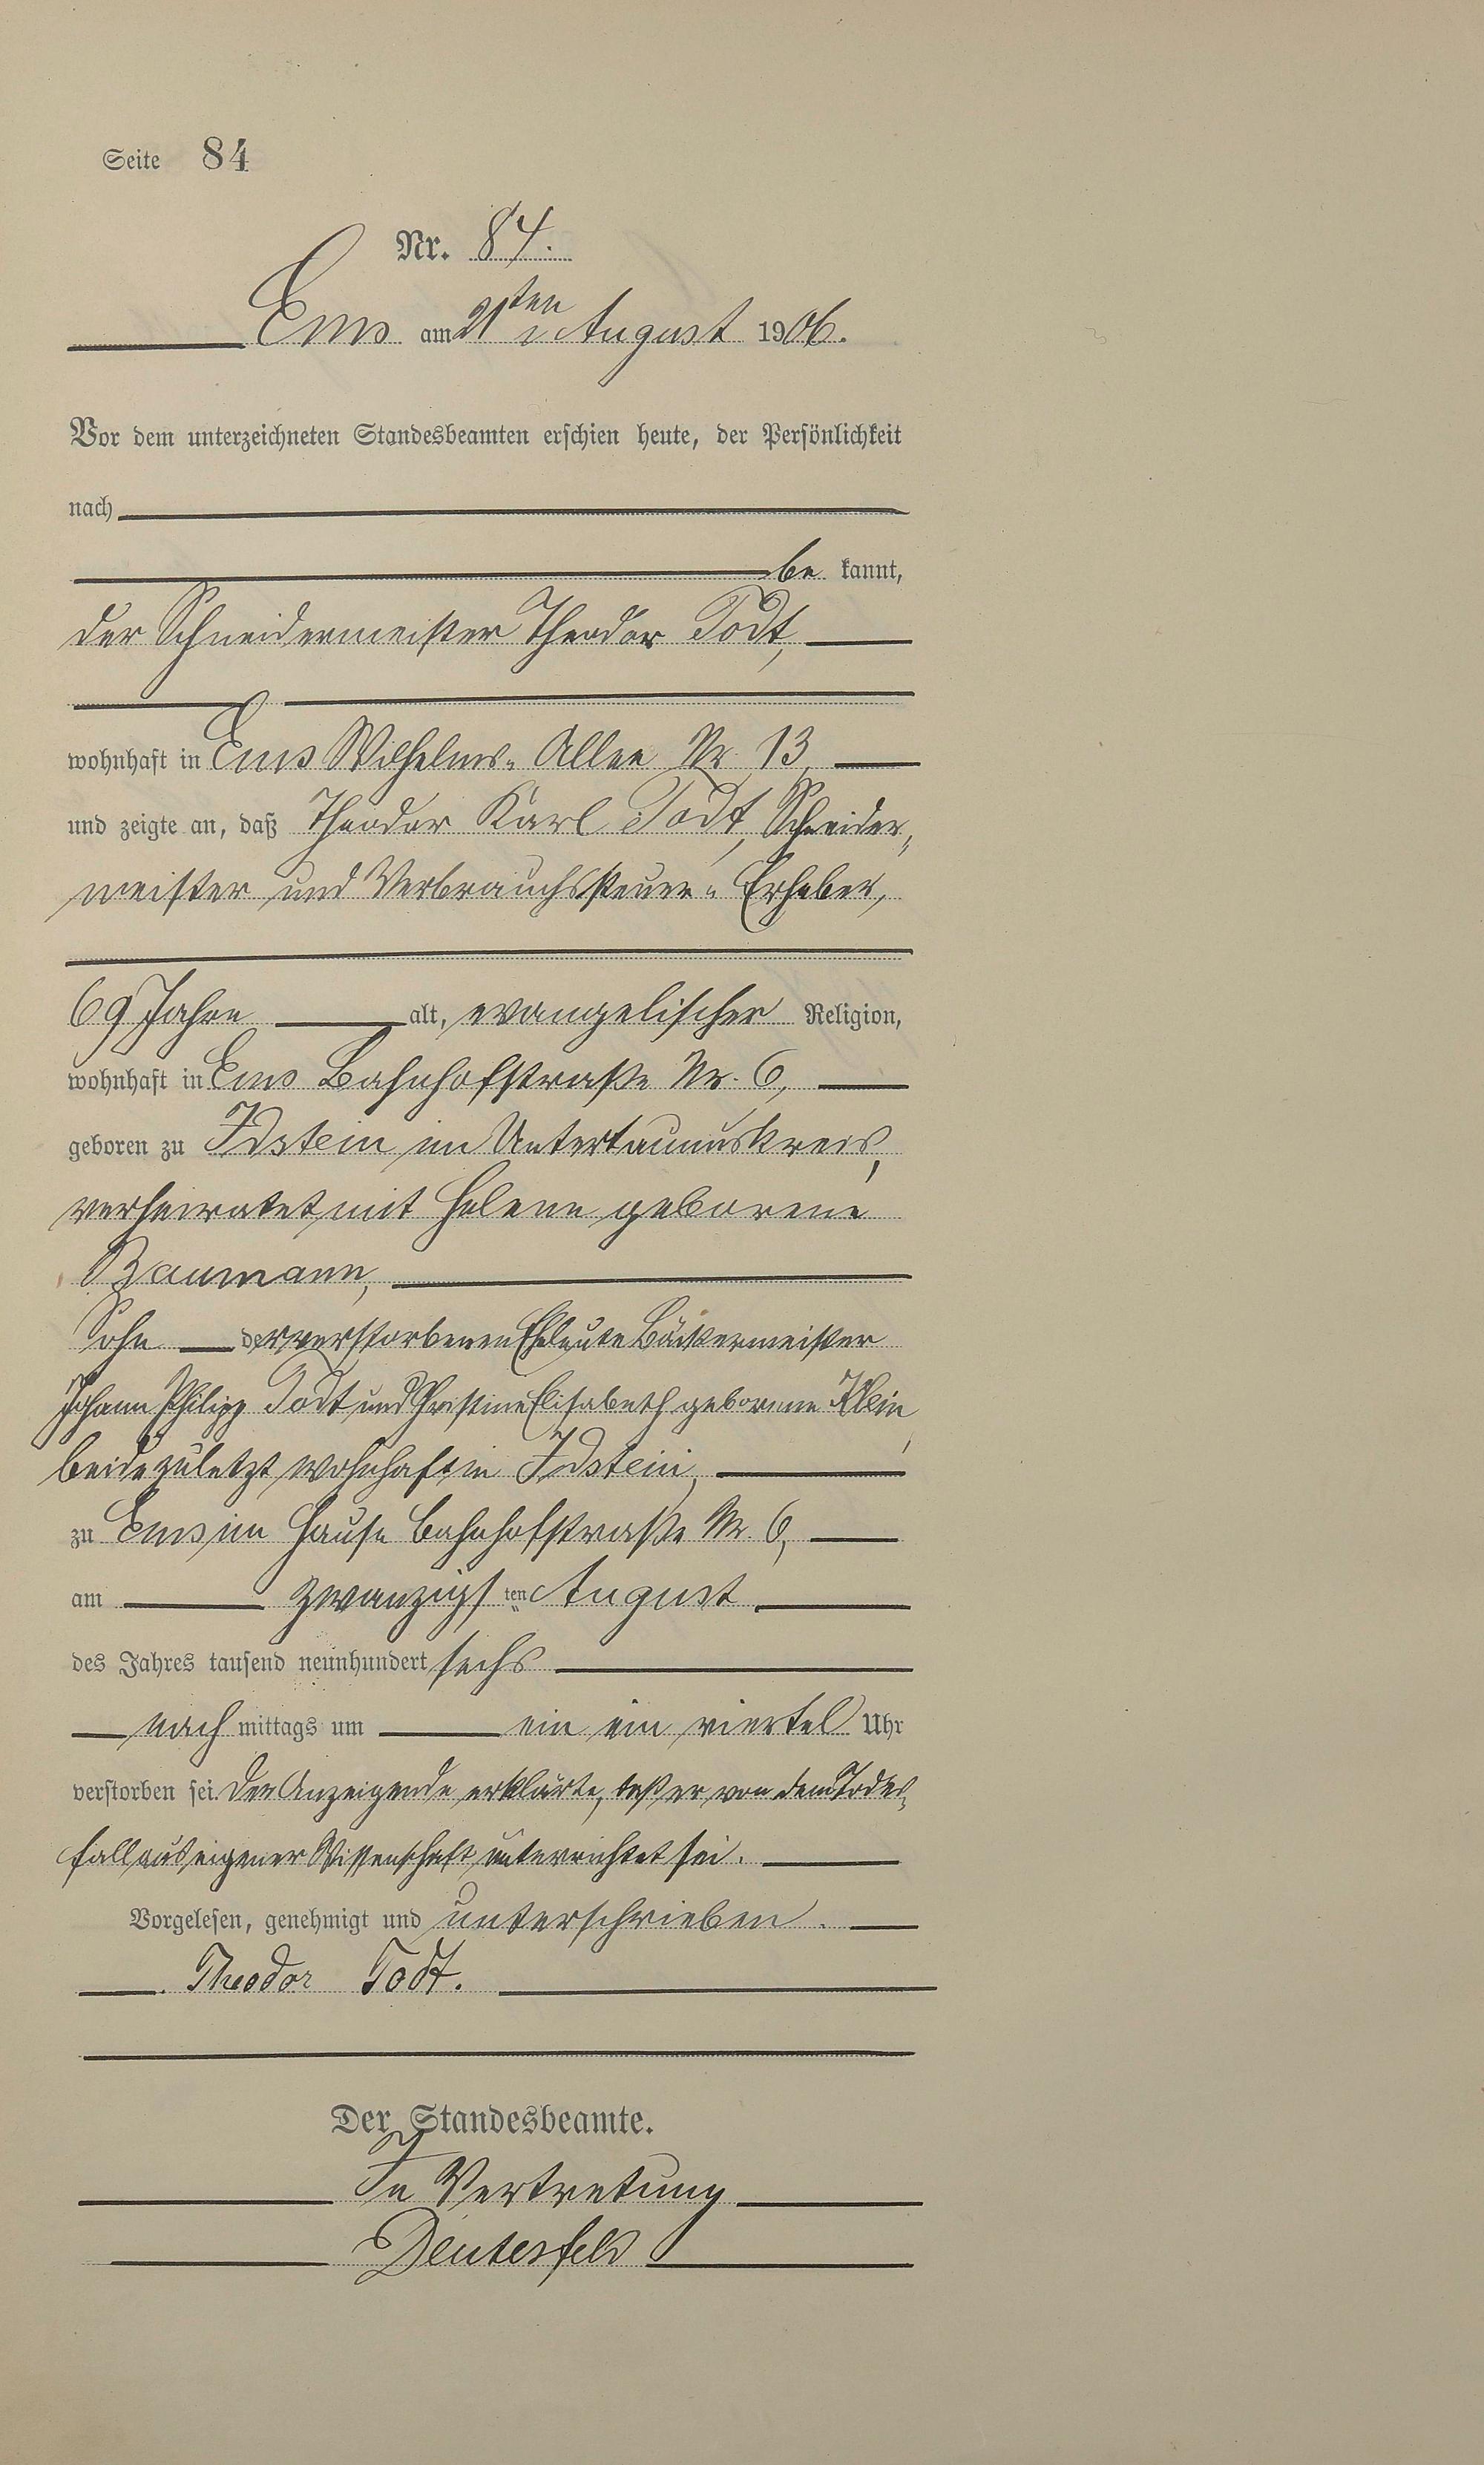 Seite 84
Nr. 84.
Ems am 21ten August 1906.
Vor dem unterzeichneten Standesbeamten erschien heute, der Persönlichkeit
nach
be kannt,
der Schneidermeister Theodor Todt,
wohnhaft in Ems Wilhelms-Allee Nr. 13,
und zeigte an, daß Theodor Karl Todt, Schneider-
meister und Verbrauchssteuer-Erheber,
69 Jahre alt, evangelischer Religion,
wohnhaft in Ems Bahnhofstraße Nr. 6,
geboren zu Idstein im Untertaunuskreis,
verheiratet mit Helene geborene
Baumann,
Sohn der verstorbenen Eheleute Bäckermeister
Johann Philipp Todt und Christine Elisabeth geborene Klein,
beide zuletzt wohnhaft in Idstein,
zu Ems im Hause Bahnhofstraße Nr. 6,
am zwanzigsten August
des Jahres tausend neunhundert sechs
nach mittags um ein ein viertel Uhr
verstorben sei. Der Anzeigende erklärte, daß er von dem Todes-
fall aus eigener Wissenschaft unterrichtet sei.
Vorgelesen, genehmigt und unterschrieben.
Theodor Todt.
Der Standesbeamte.
In Vertretung
Deutesfeld